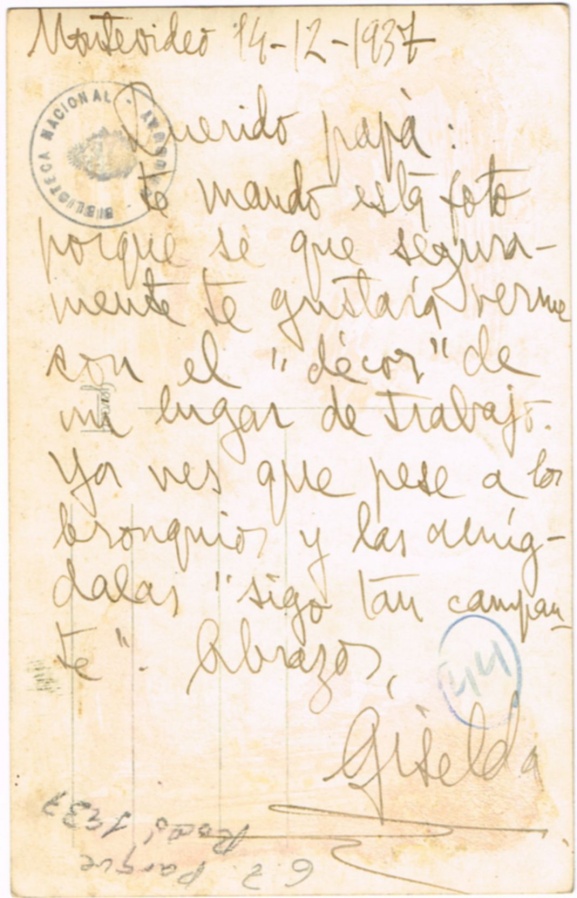 Montevideo 14-12-1937
BIBLIOTECA NACIONAL
Querido papá:
te mando esta foto
porque sé que segura-
mente te gustaría verme
con el "décor" de
mi lugar de trabajo.
Ya ves que pese a los
bronquios y las amíg-
dalas "sigo tan campan-
te". Abrazos,
44
Giselda
62 Parque
Rodó 1937